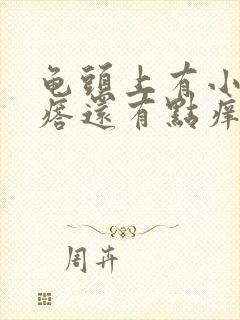 龟頭上有小
痞還有點痒
周卉